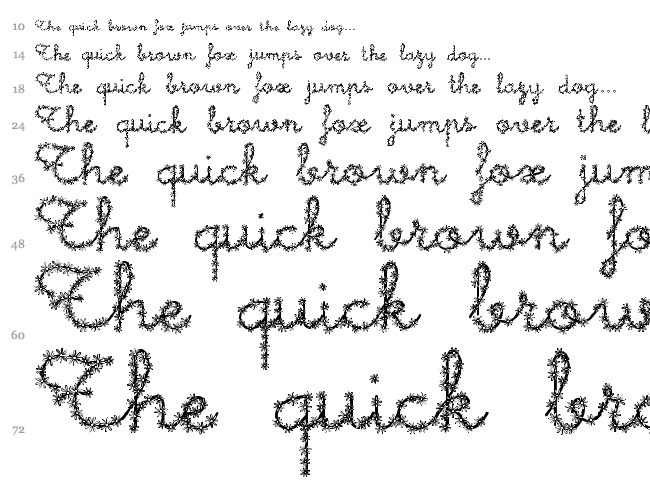 10 The quick brown fox jumps over the lazy dog...
14 The quick brown fox jumps over the lazy dog...
18 The quick brown fox jumps over the lazy dog...
24 The quick brown fox jumps over the l
36 The quick brown fox jum
48 The quick brown fo
60 The quick brow
72 The quick bro